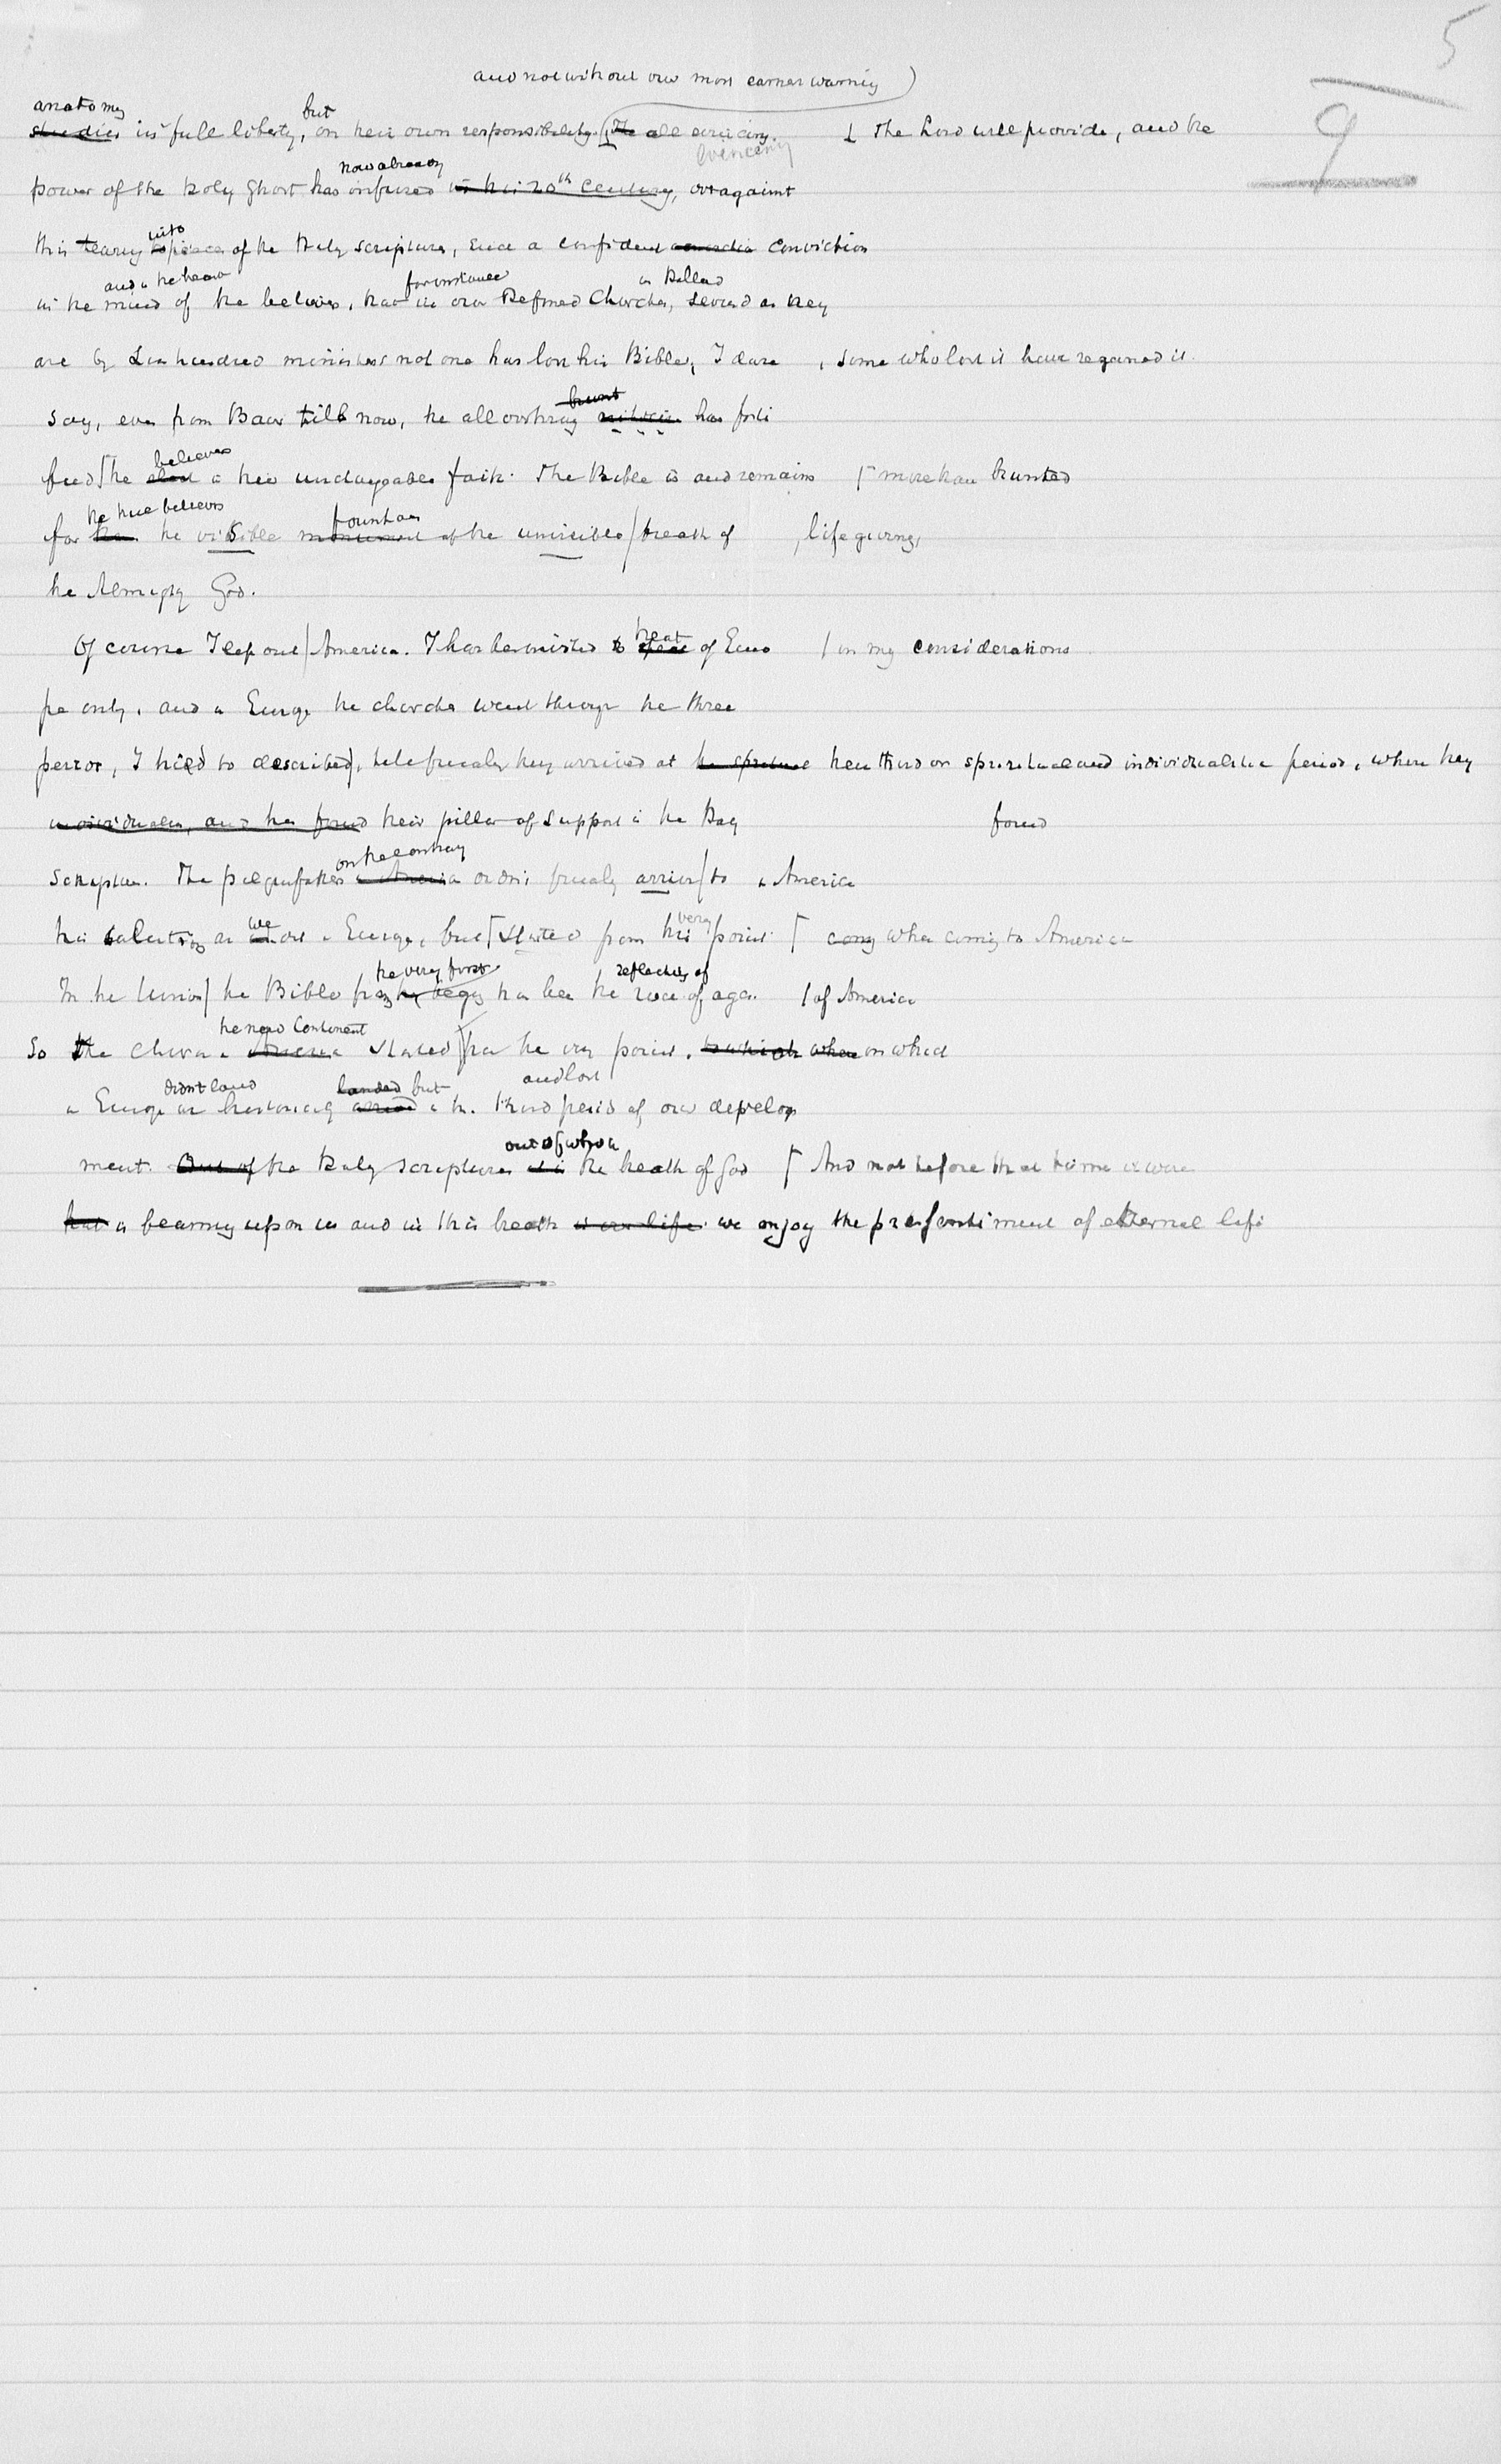 5
9
and not without our most earnest warning
anatomy but
studies in full liberty, on their own responsibility. The all  The Lord will provide, and the
now already
power of the Holy Ghost has infused in this 20th Century, over against
into
this tearing to pieces of the Holy scripture, such a confident conviction
and in the heart for instance in Holland
in the mind of the believers, that in our Reformed Churches, served as they
are by six hundred ministers not one has lost his Bible, I dare , some who lost it have regained it.
say, even from Baur till now, the all outhing has forti
believers
fied the in their undamable faith. The Bible is and remains more than hunted
the true believers fountain
for the visible monument of the unvisible breath of , lifegiving,
the Almighty God.
treat
Of course I left out America. I has been invited to of Euro in my considerations
pe only. and in Europe the churches went through the three
period, I tried to described, till finaly they arrived at the spiritual their third or spiritual and individualistic period, where they
individualistic, and has found their pillar of support in the Holy found
on the contrary
scripture. The pilgrimfathers in America didn't finaly arrive to in America
we very
this as in Europe, but started from this point coming when coming to America
the very first reflecting of
In the Union the Bible from has been the rock of ages. of America
the new Continent
So the church in America started from the very point, to which when on which
didn't land landed but and last
in Europe we historicaly arrived in the third period of our develop
out of which
ment. Out of the Holy scriptures it is the breath of God And not before that time it were
that is beaming upon us and in this breath is our life. we enjoy the presentiment of eternal life